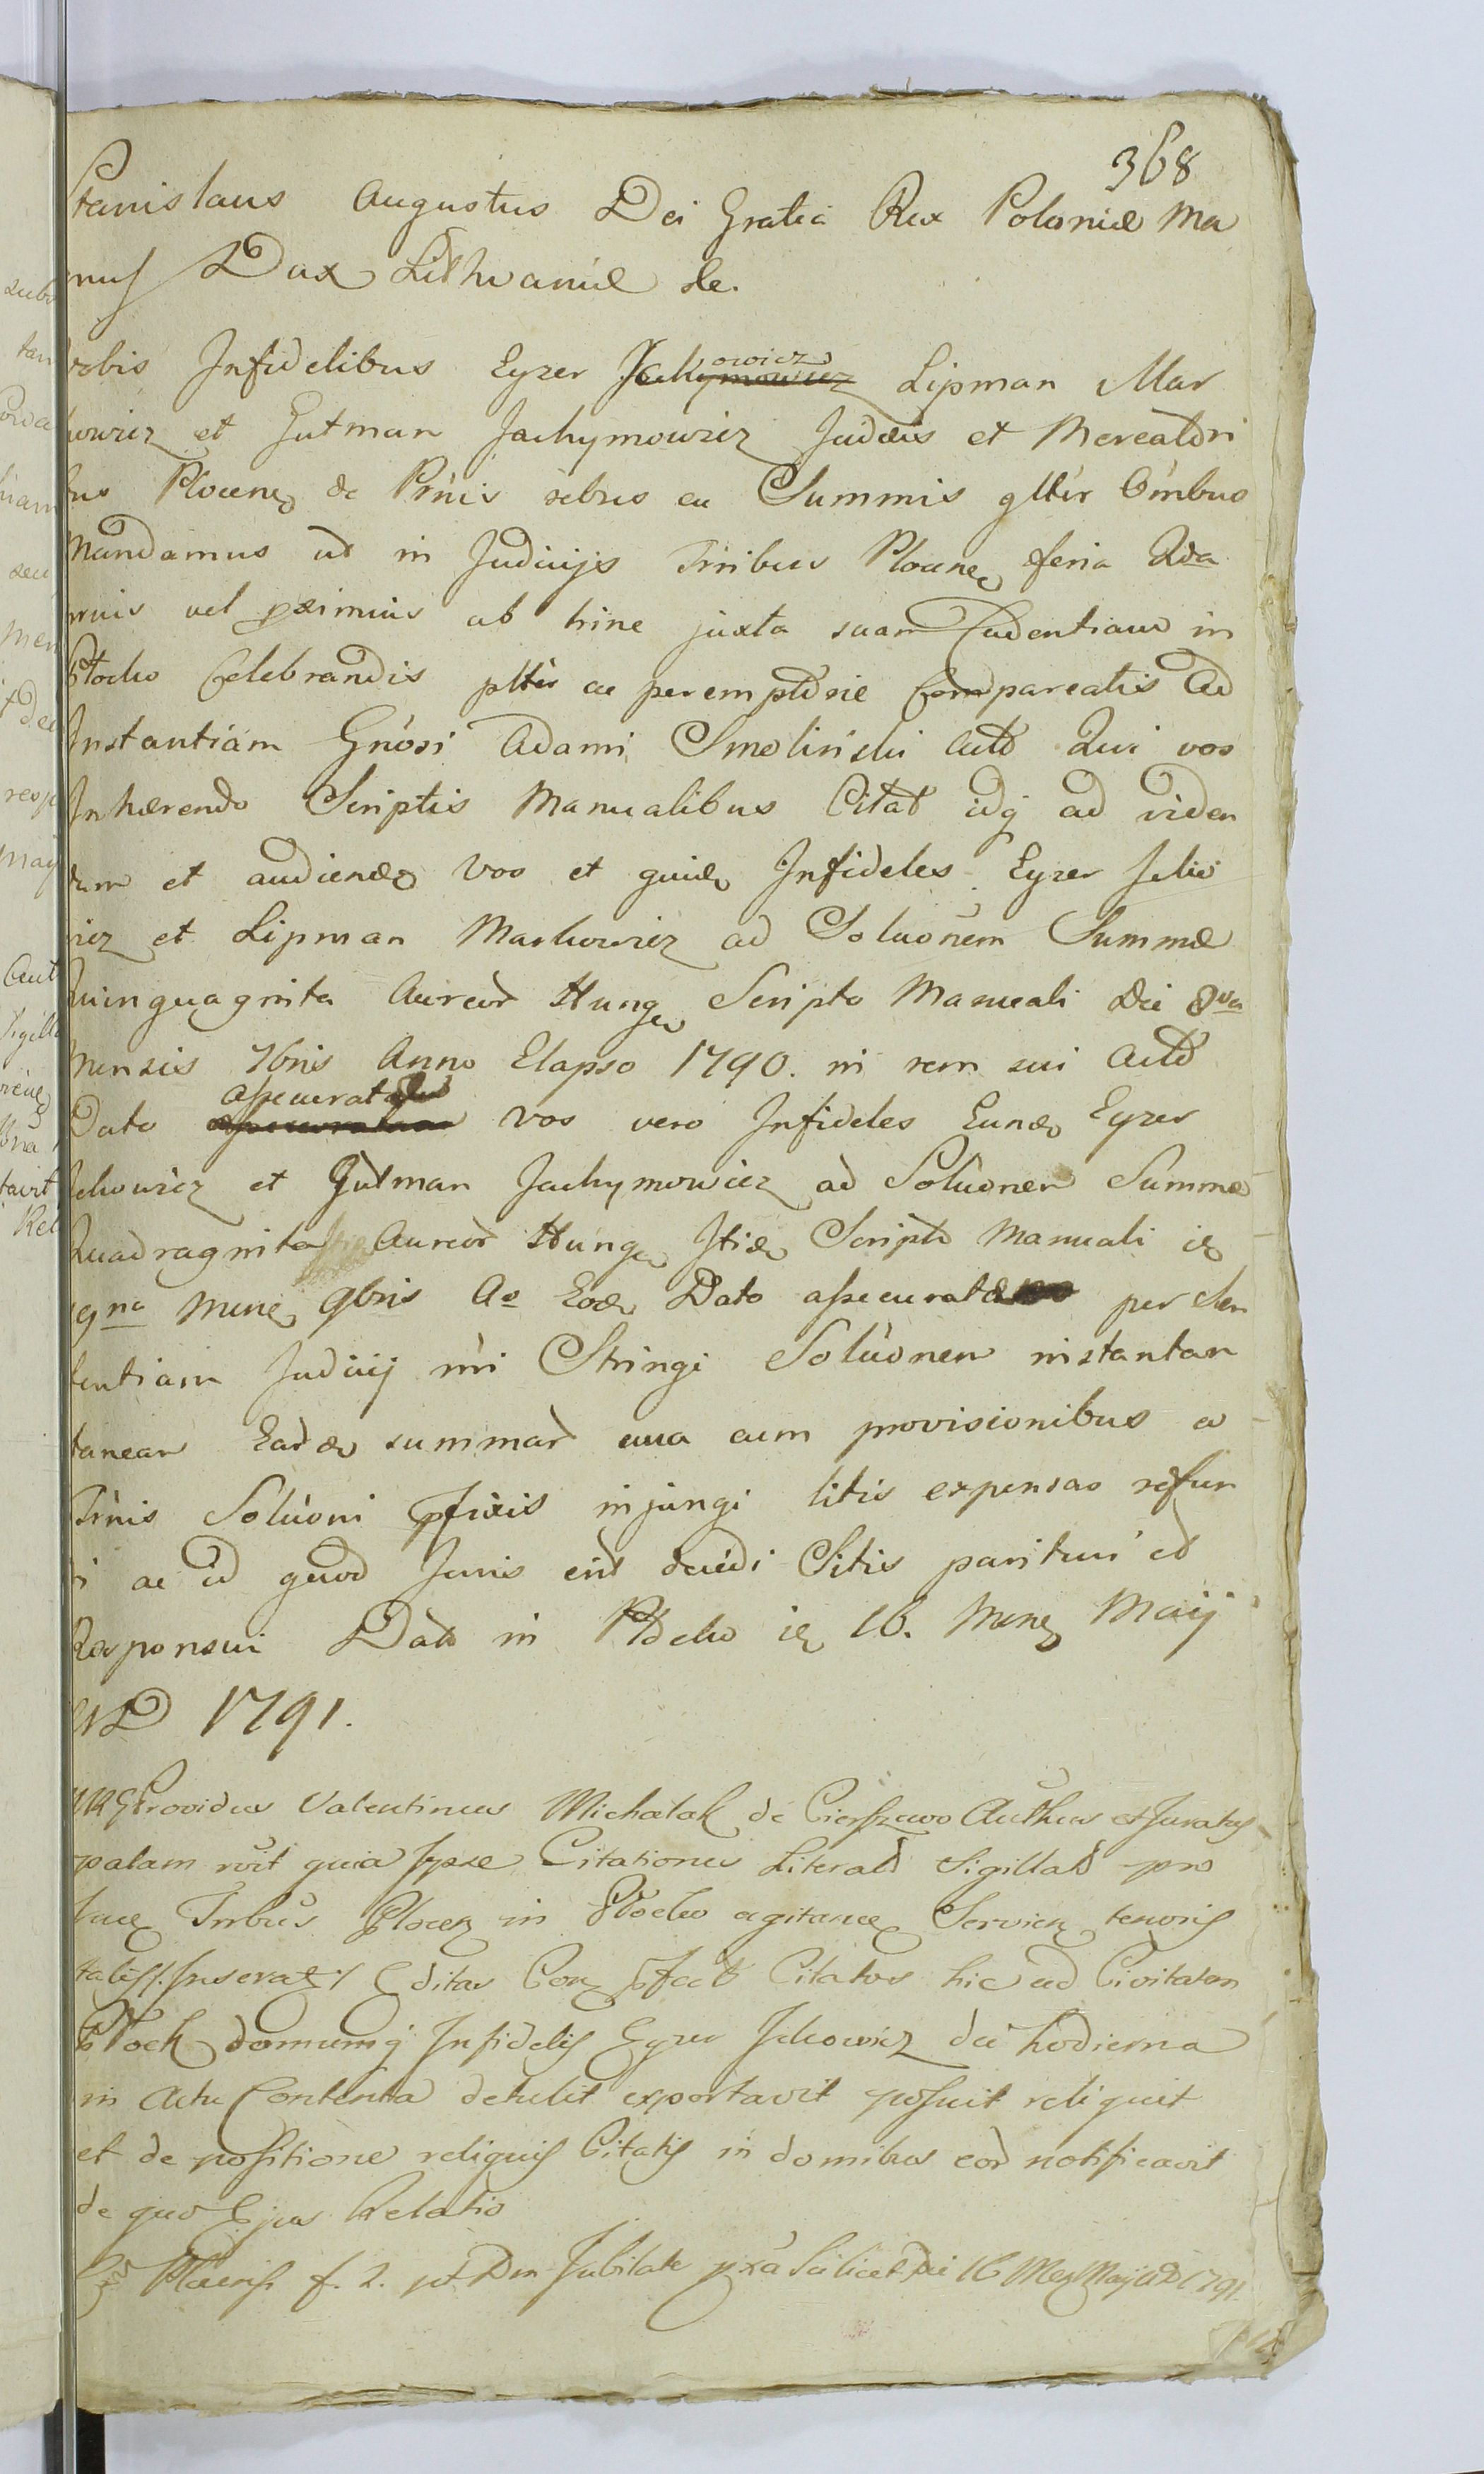 368
Stanislaus Augustus Dei Gratia Rex Poloniæ Ma
nus Dux Lithvaniæ &c.
vobis Infidelibus Eyzer owicz Lipman Mar
kowicz et Gutman Jachymowicz Judæis et Mercatori
bus Plocen de Prnis rebus ac Summis glttr Ombus
Mandamus ut in Judicijs Trribus Plocen feria 2da
prnis vel pximius ab hinc juxta suam Cadentiam in
Płocko Celebrandis plttr ac peremptorie Compareatis Ad
Instantiam Gnosi Adami Smoliński Act Qui vos
Inhærendo Scriptis Manualibus Citat idq ad viden
dum et audiend Vos et quid Infideles Eyzer Icko
wicz et Lipman Markowicz ad Soluonem Summæ
Quinquaginta Aureor Hung Scripto Manuali Die 8va
Mensis 7bris Anno Elapso 1790. in rem sui Act
Dato assecuratæ vos vero Infideles Eund Eyzer
Ickowicz et Gutman Jachymowicz ad Soluonem Summæ
Quadraginta Aureor Hung Itid Scripto Manuali ie
9na Mens 9bris Ao Eod Dato assecuratæ per Sen
tentiam Judicij nri Stringi Soluonem instantan
tanean Eard summar una cum provisionibus a
Trnis Soluoni pfixis injungi litis expensas refun
di ac id quod Juris erit decidi Sitis parituri et
Responsuri Dat in Płocko ie 16. Mens Maij
AD 1791.
Providus Valentinus Michalak de Cierszewo Authus et Juratus
palam rcvit quia Ipse Citationes Literales Sigillat pro
Trribus Plocen in Płocko agitand Servien tenoris
talis /:Inserat:/ Editas Con pfact Citatos hic ad Civitatem
Płock domumq Infidelis Eyzer Ickowicz die hodierna
in Actu Contenta detulit exportavit posuit reliquit
et de positione reliquis Citatis in domibus eor notificavit
de quo Ejus Relatio
Plocens f. 2. pt Dm Jubilate pxa Scilicet Die 16 Mens Maij AD 1791.